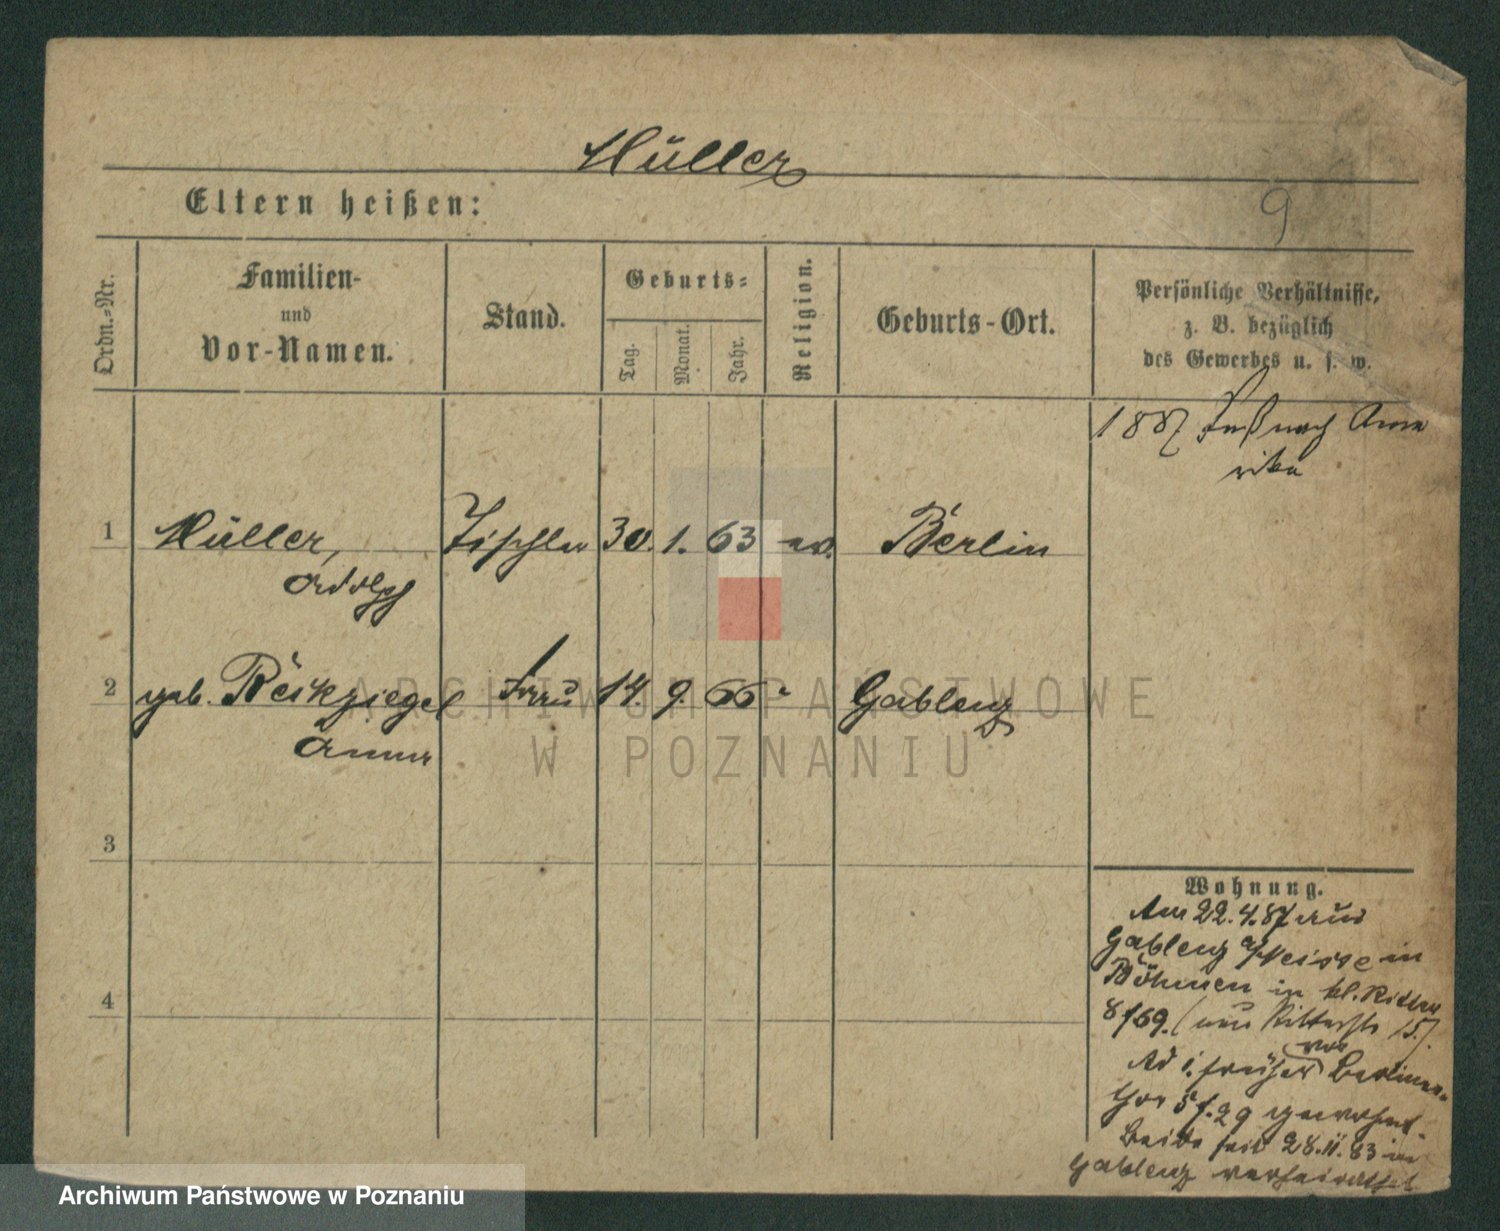 Müller
Eltern heißen:
9
Ordn.-Nr.
Familien-
und
Vor-Namen.
Stand.
Geburts-
Tag.
Monat.
Jahr.
Religion.
Geburts-Ort.
Persönliche Verhältnisse,
z. B. bezüglich
des Gewerbes u. s. w.
1887 nach Ame
rika
1 Müller, Tischler 30. 1. 63 ev. Berlin
Adolph
2 geb. Frau 14. 9. 66 " Gablenz
Anna
3
4
Wohnung.
Am 22.4.87 aus
Gablenz a/Neisse in
Böhmen in kl. Ritter
8/69. (neu Ritterstr 15).
vor
Ad 1. früher Berliner-
thor 5 f. 29 gewohnt.
Beide seit 28.11.83 in
Gablenz verheirathet
ARCHIWUM PAŃSTWOWE
W POZNANIU
Archiwum Państwowe w Poznaniu